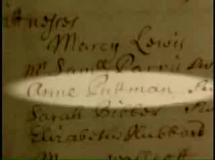 witnesses
Marcy Lewis
mr Samll Parris
Anne Puttman
Sarah Bibber
Elizabeth Hubbard